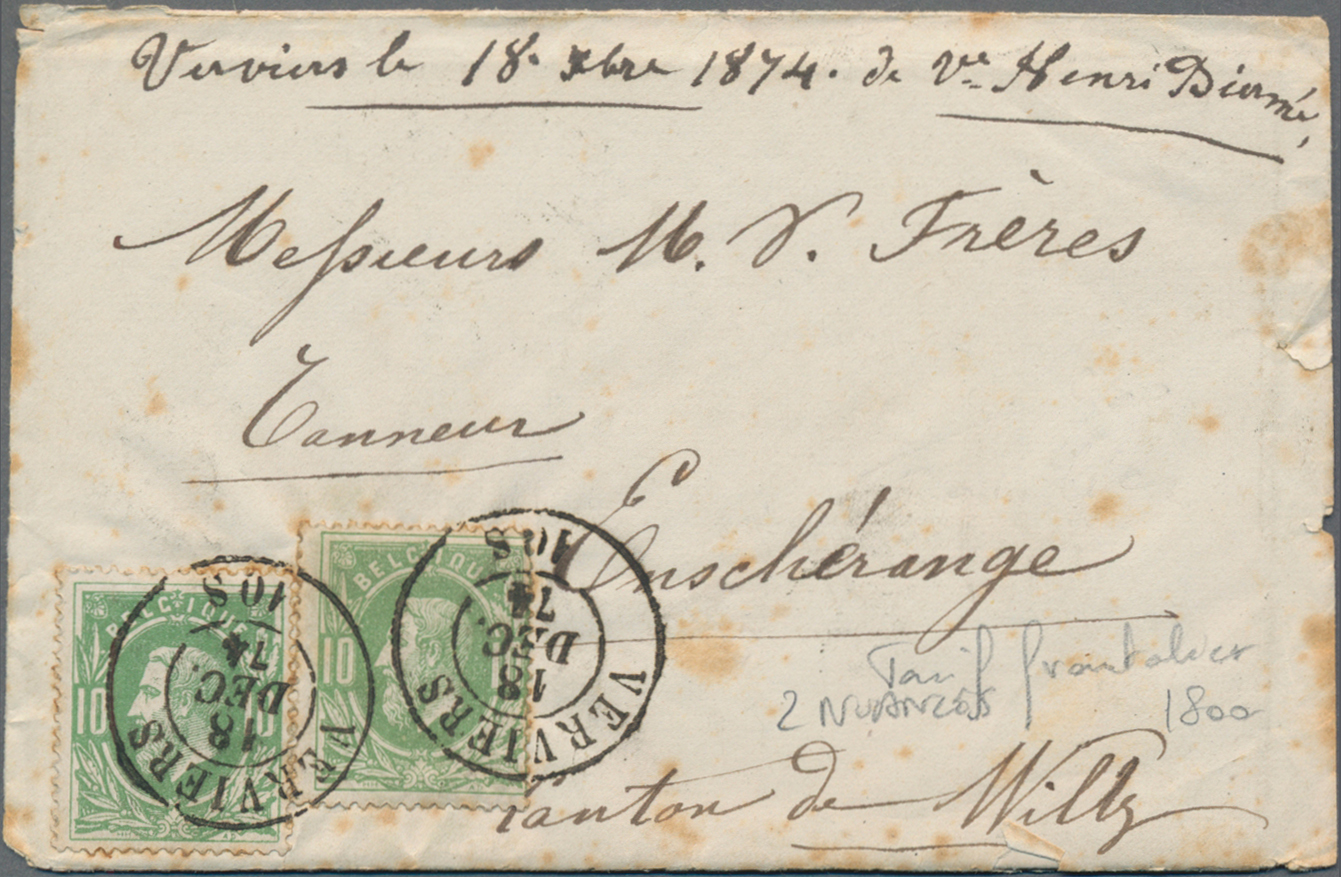 Verviers le 18. xbre 1874. de Vve Henri Diermé,
Messieurs M. V. Frères
Tanneur
Enschérange
Tarif frontalier
2 NUANCES 1800
Canton de Wiltz
BELGIQUE
10
VERVIERS
18
DEC.
74
10S
BELGIQUE
10
VERVIERS
18
DEC.
74
10S